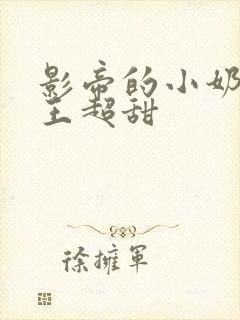 影帝的小奶
王超甜
徐擁軍